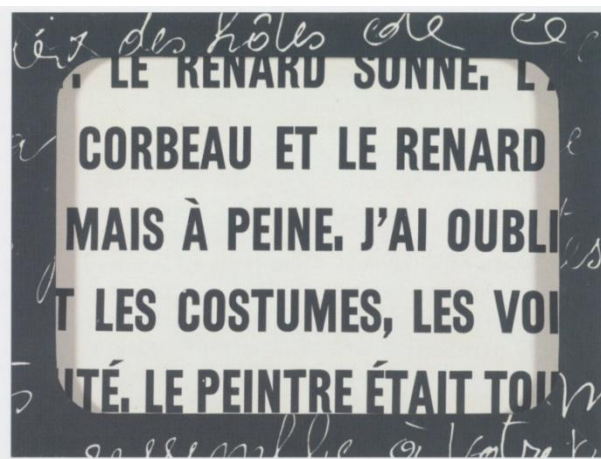 des hôles de ce
LE RENARD SONNE. L
CORBEAU ET LE RENARD
MAIS À PEINE. J'AI OUBLI
T LES COSTUMES, LES VOI
ITÉ. LE PEINTRE ÉTAIT TOU
ensemble à votre